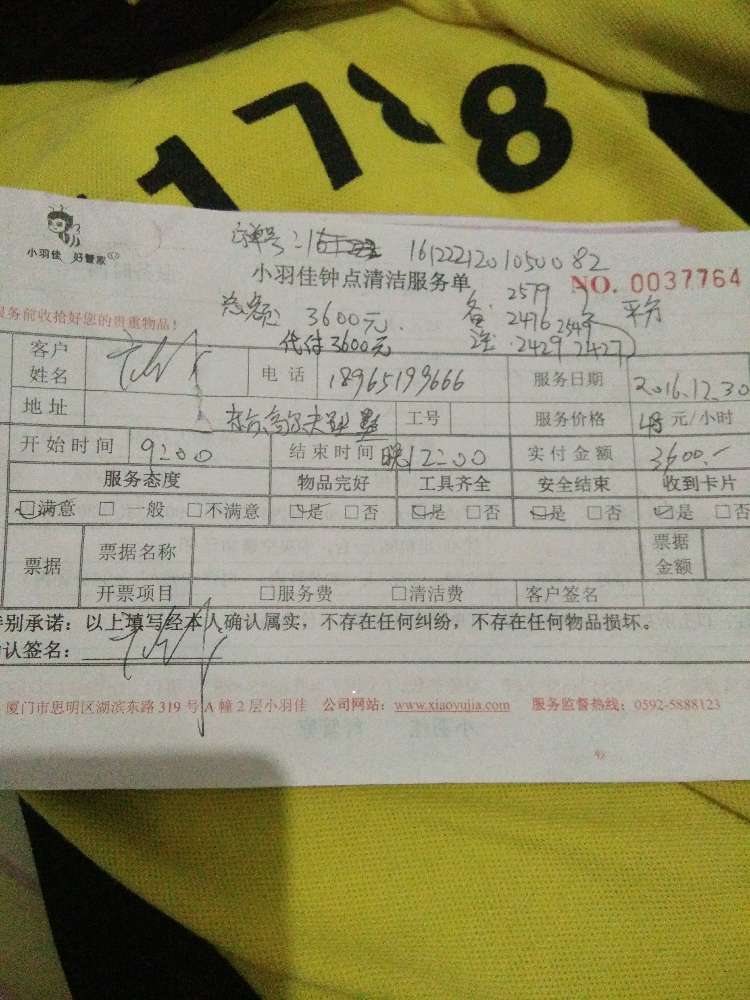 1178
小羽佳 好管家
订单号:
1612221201050082
小羽佳钟点清洁服务单 NO. 0037764
服务前收拾好您的贵重物品!
总额: 3600元. 备注: 2579 2416 2549 2429 2427 平分
代付3600元
客户姓名 电话 18965199666 服务日期 2016.12.30
地址 高尔夫别墅 工号 服务价格 48元/小时
开始时间 9:00 结束时间 晚12:00 实付金额 3600.-
服务态度 物品完好 工具齐全 安全结束 收到卡片
☑满意 □一般 □不满意 ☑是 □否 ☑是 □否 ☑是 □否 ☑是 □否
票据 票据名称 票据金额
开票项目 □服务费 □清洁费 客户签名
特别承诺:以上填写经本人确认属实,不存在任何纠纷,不存在任何物品损坏。
确认签名:
厦门市思明区湖滨东路 319 号 A 幢 2 层小羽佳 公司网站:www.xiaoyujia.com 服务监督热线:0592-5888123